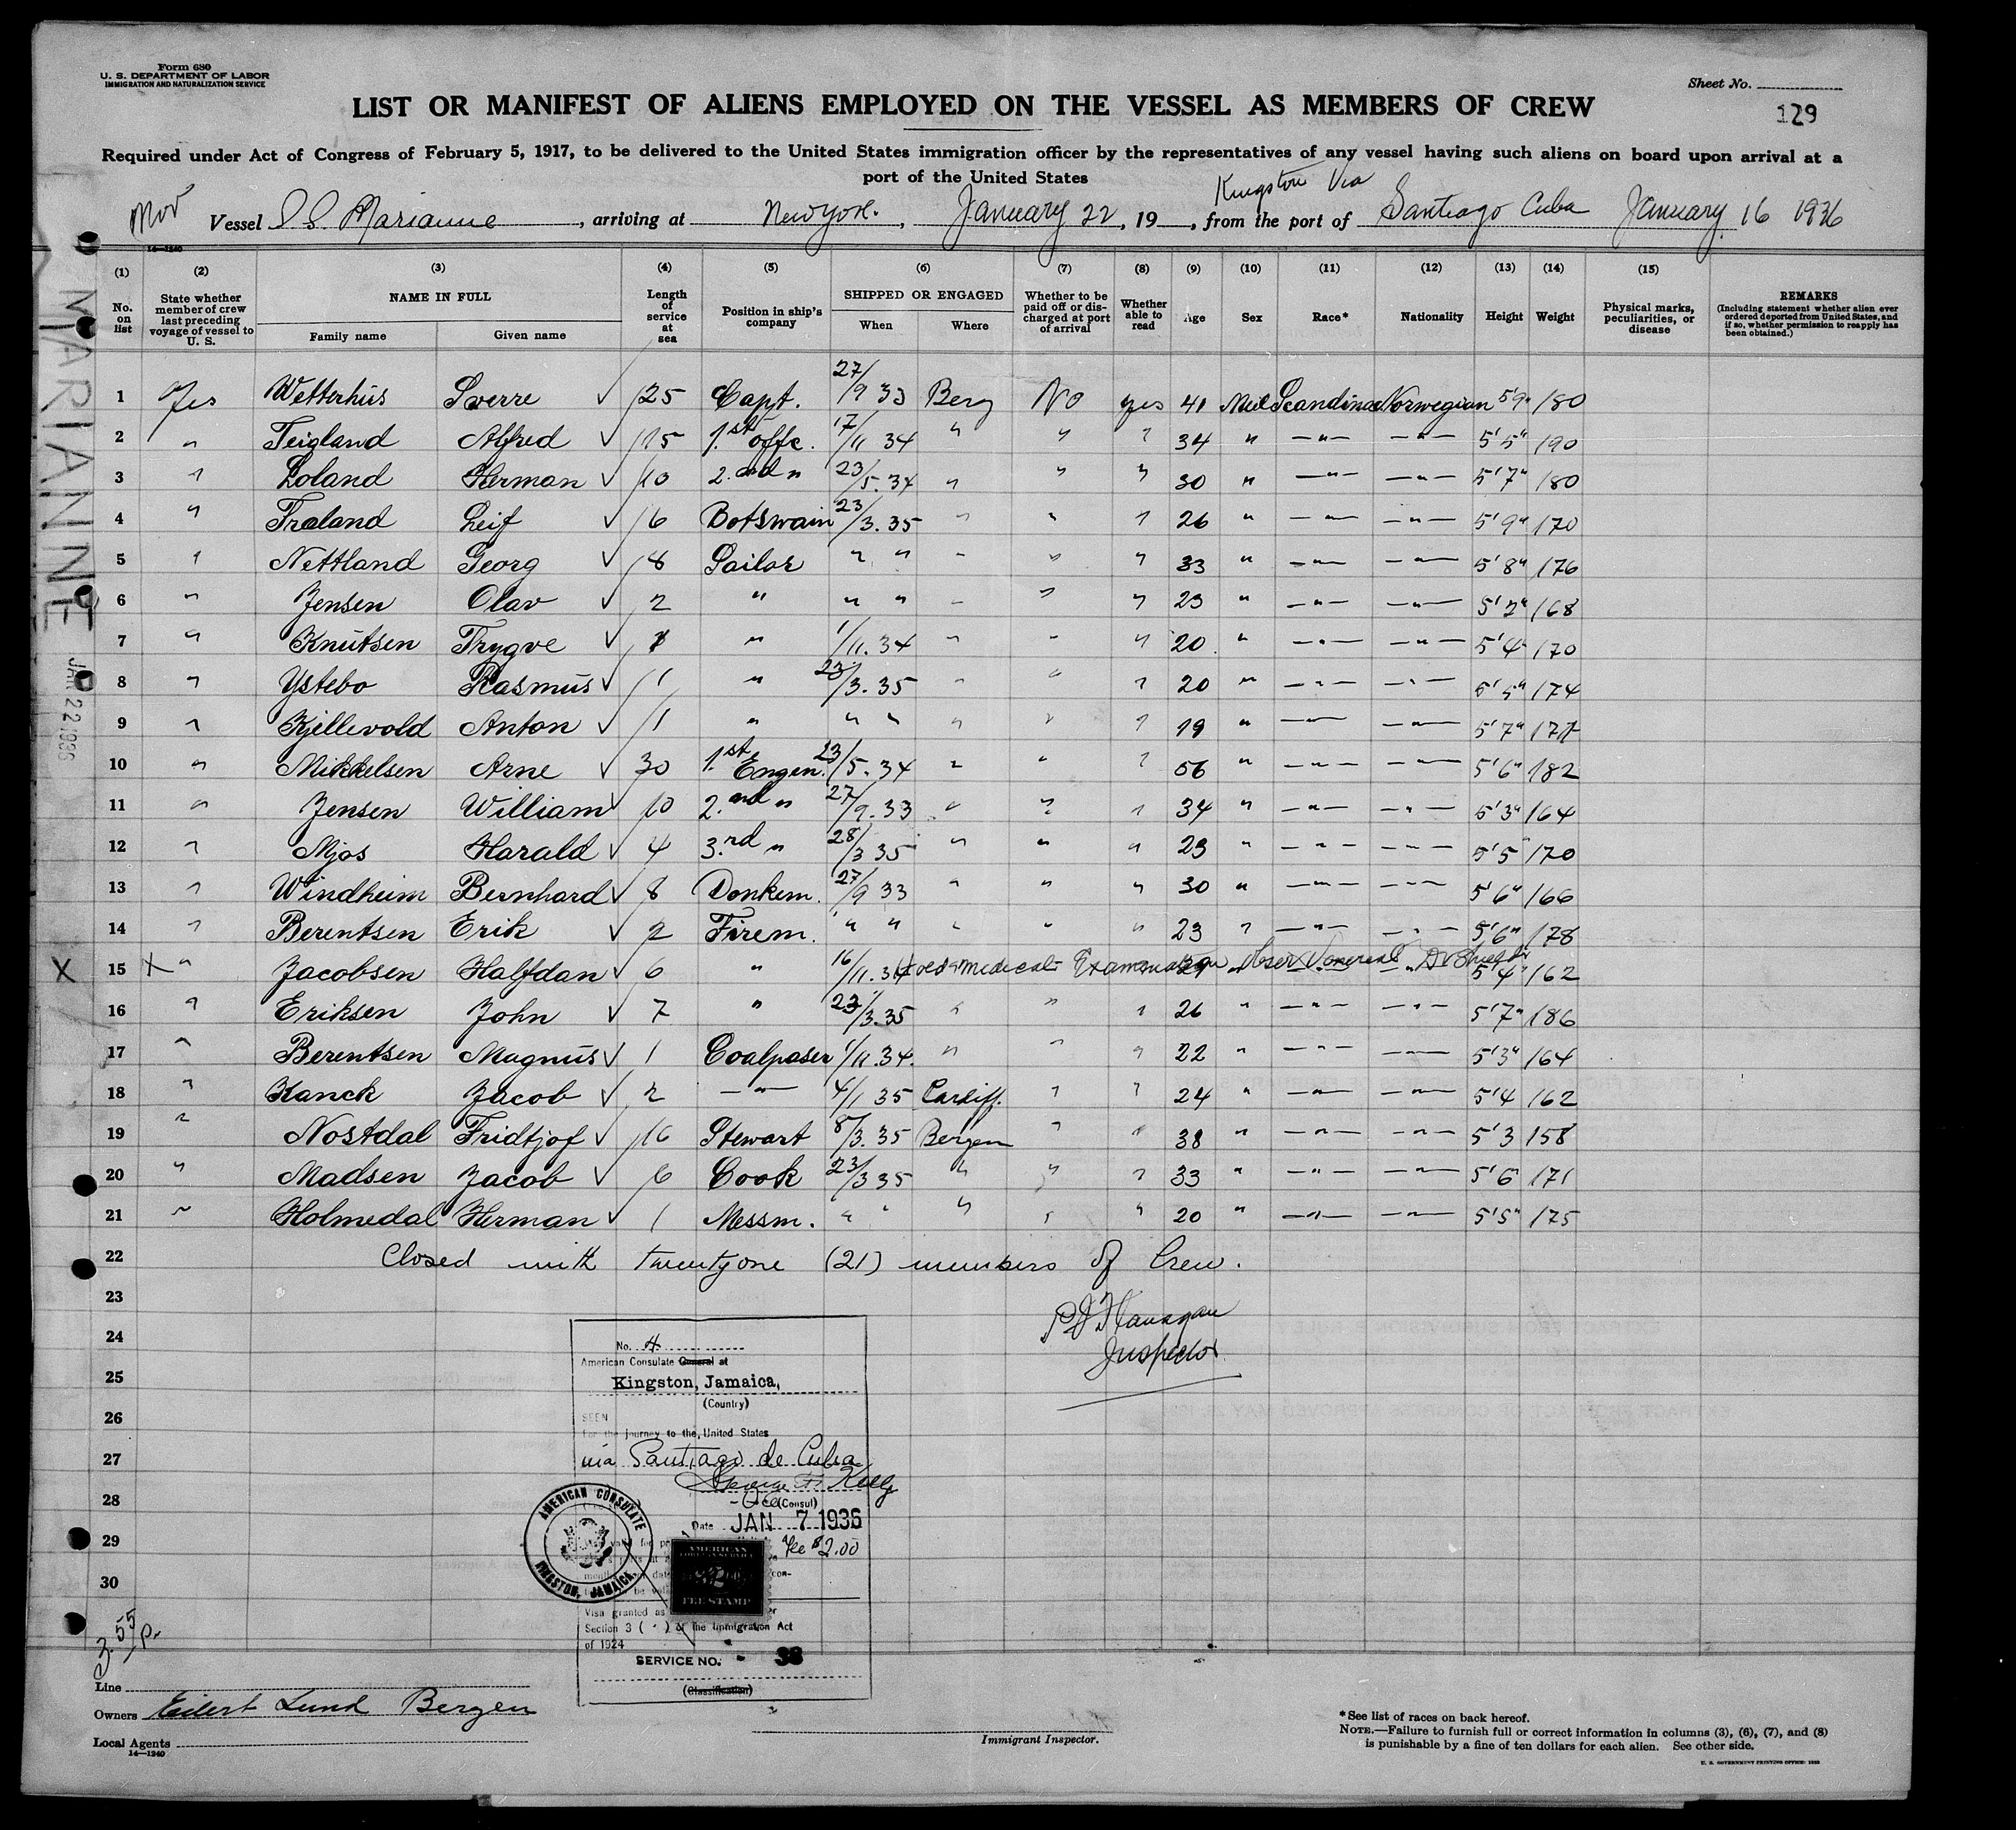 Form 680
U. S. DEPARTMENT OF LABOR
IMMIGRATION AND NATURALIZATION SERVICE
Sheet No.
129
LIST OR MANIFEST OF ALIENS EMPLOYED ON THE VESSEL AS MEMBERS OF CREW
Required under Act of Congress of February 5, 1917, to be delivered to the United States immigration officer by the representatives of any vessel having such aliens on board upon arrival at a
port of the United States
Kingston Via
Nor Vessel S.S. Marianne, arriving at New York., January 22, 19, from the port of Santiago Cuba January 16 1936
14—1240
MARIANNE JAN 22 1936
(1) (2) (3) (4) (5) (6) (7) (8) (9) (10) (11) (12) (13) (14) (15)
No. on list
State whether member of crew last preceding voyage of vessel to U. S.
NAME IN FULL
Family name Given name
Length of service at sea
Position in ship's company
SHIPPED OR ENGAGED
When Where
Whether to be paid off or discharged at port of arrival
Whether able to read
Age Sex Race* Nationality Height Weight
Physical marks, peculiarities, or disease
REMARKS
(Including statement whether alien ever ordered deported from United States, and if so, whether permission to reapply has been obtained.)
1 Yes Wetterhus Sverre √ 25 Capt. 27/9 33 Berg No yes 41 Male Scandinav Norwegian 5'9" 180
2 " Teigland Alfred √ 15 1.st offc. 17/11 34 " " " 34 " —"— —"— 5'5" 190
3 " Loland Herman √ 10 2.nd " 23/5.34 " " " 30 " —"— —"— 5'7" 180
4 " Traland Leif √ 6 Botswain 23/3.35 " " " 26 " —"— —"— 5'9" 170
5 " Nettland Georg √ 8 Sailor " " " " " 33 " —"— —"— 5'8" 176
6 " Jensen Olav √ 2 " " " " " " 23 " —"— —"— 5'2" 168
7 " Knutsen Trygve √ 1 " 1/11.34 " " " 20 " —"— —"— 5'4" 170
8 " Ystebo Rasmus √ 1 " 23/3.35 " " " 20 " —"— —"— 5'5" 174
9 " Kjellevold Anton √ 1 " " " " " " 19 " —"— —"— 5'7" 177
10 " Mikkelsen Arne √ 30 1.st Engen. 23/5.34 " " " 56 " —"— —"— 5'6" 182
11 " Jensen William √ 10 2.nd " 27/9.33 " " " 34 " —"— —"— 5'3" 164
12 " Mjos Harald √ 4 3.rd " 28/3 35 " " " 23 " —"— —"— 5'5" 170
13 " Windheim Bernhard √ 8 Donkem. 27/9 33 " " " 30 " —"— —"— 5'6" 166
14 " Berentsen Erik √ 2 Firem. " " " " " 23 " —"— —"— 5'6" 178
X 15 X " Jacobsen Halfdan √ 6 " 16/11.34 medical Examination 29 " —"— —"— 5'4" 162
16 " Eriksen John √ 7 " 23/3.35 " " " 26 " —"— —"— 5'7" 186
17 " Berentsen Magnus √ 1 Coalpaser 1/11.34. " " " 22 " —"— —"— 5'3" 164
18 " Hanck Jacob √ 2 —"— 4/1 35 Cardiff. " " 24 " —"— —"— 5'4 162
19 " Nostdal Fridtjof √ 16 Stewart 8/3.35 Bergen " " 38 " —"— —"— 5'3 158
20 " Madsen Jacob √ 6 Cook 23/3 35 " " " 33 " —"— —"— 5'6 171
21 " Holmedal Herman √ 1 Messm. " " " " " 20 " —"— —"— 5'5" 175
22 Closed with twenty one (21) members of Crew.
23
24
25
26
27
28
29
30
P J Flanagan
Inspector
No. 4
American Consulate General at
Kingston, Jamaica,
(Country)
SEEN
For the journey to the United States
via Santiago de Cuba
George F. Kelly
(Consul)
Date JAN 7 1936
Fee $2.00
AMERICAN CONSULATE
KINGSTON, JAMAICA.
AMERICAN
FEE STAMP
Visa granted as
Section 3 ( ) of the Immigration Act
of 1924
SERVICE NO. 38
(Classification)
3.55 p.
Line
Owners Eilert Lund Bergen
Local Agents
14—1240
Immigrant Inspector.
*See list of races on back hereof.
NOTE.—Failure to furnish full or correct information in columns (3), (6), (7), and (8)
is punishable by a fine of ten dollars for each alien. See other side.
U. S. GOVERNMENT PRINTING OFFICE